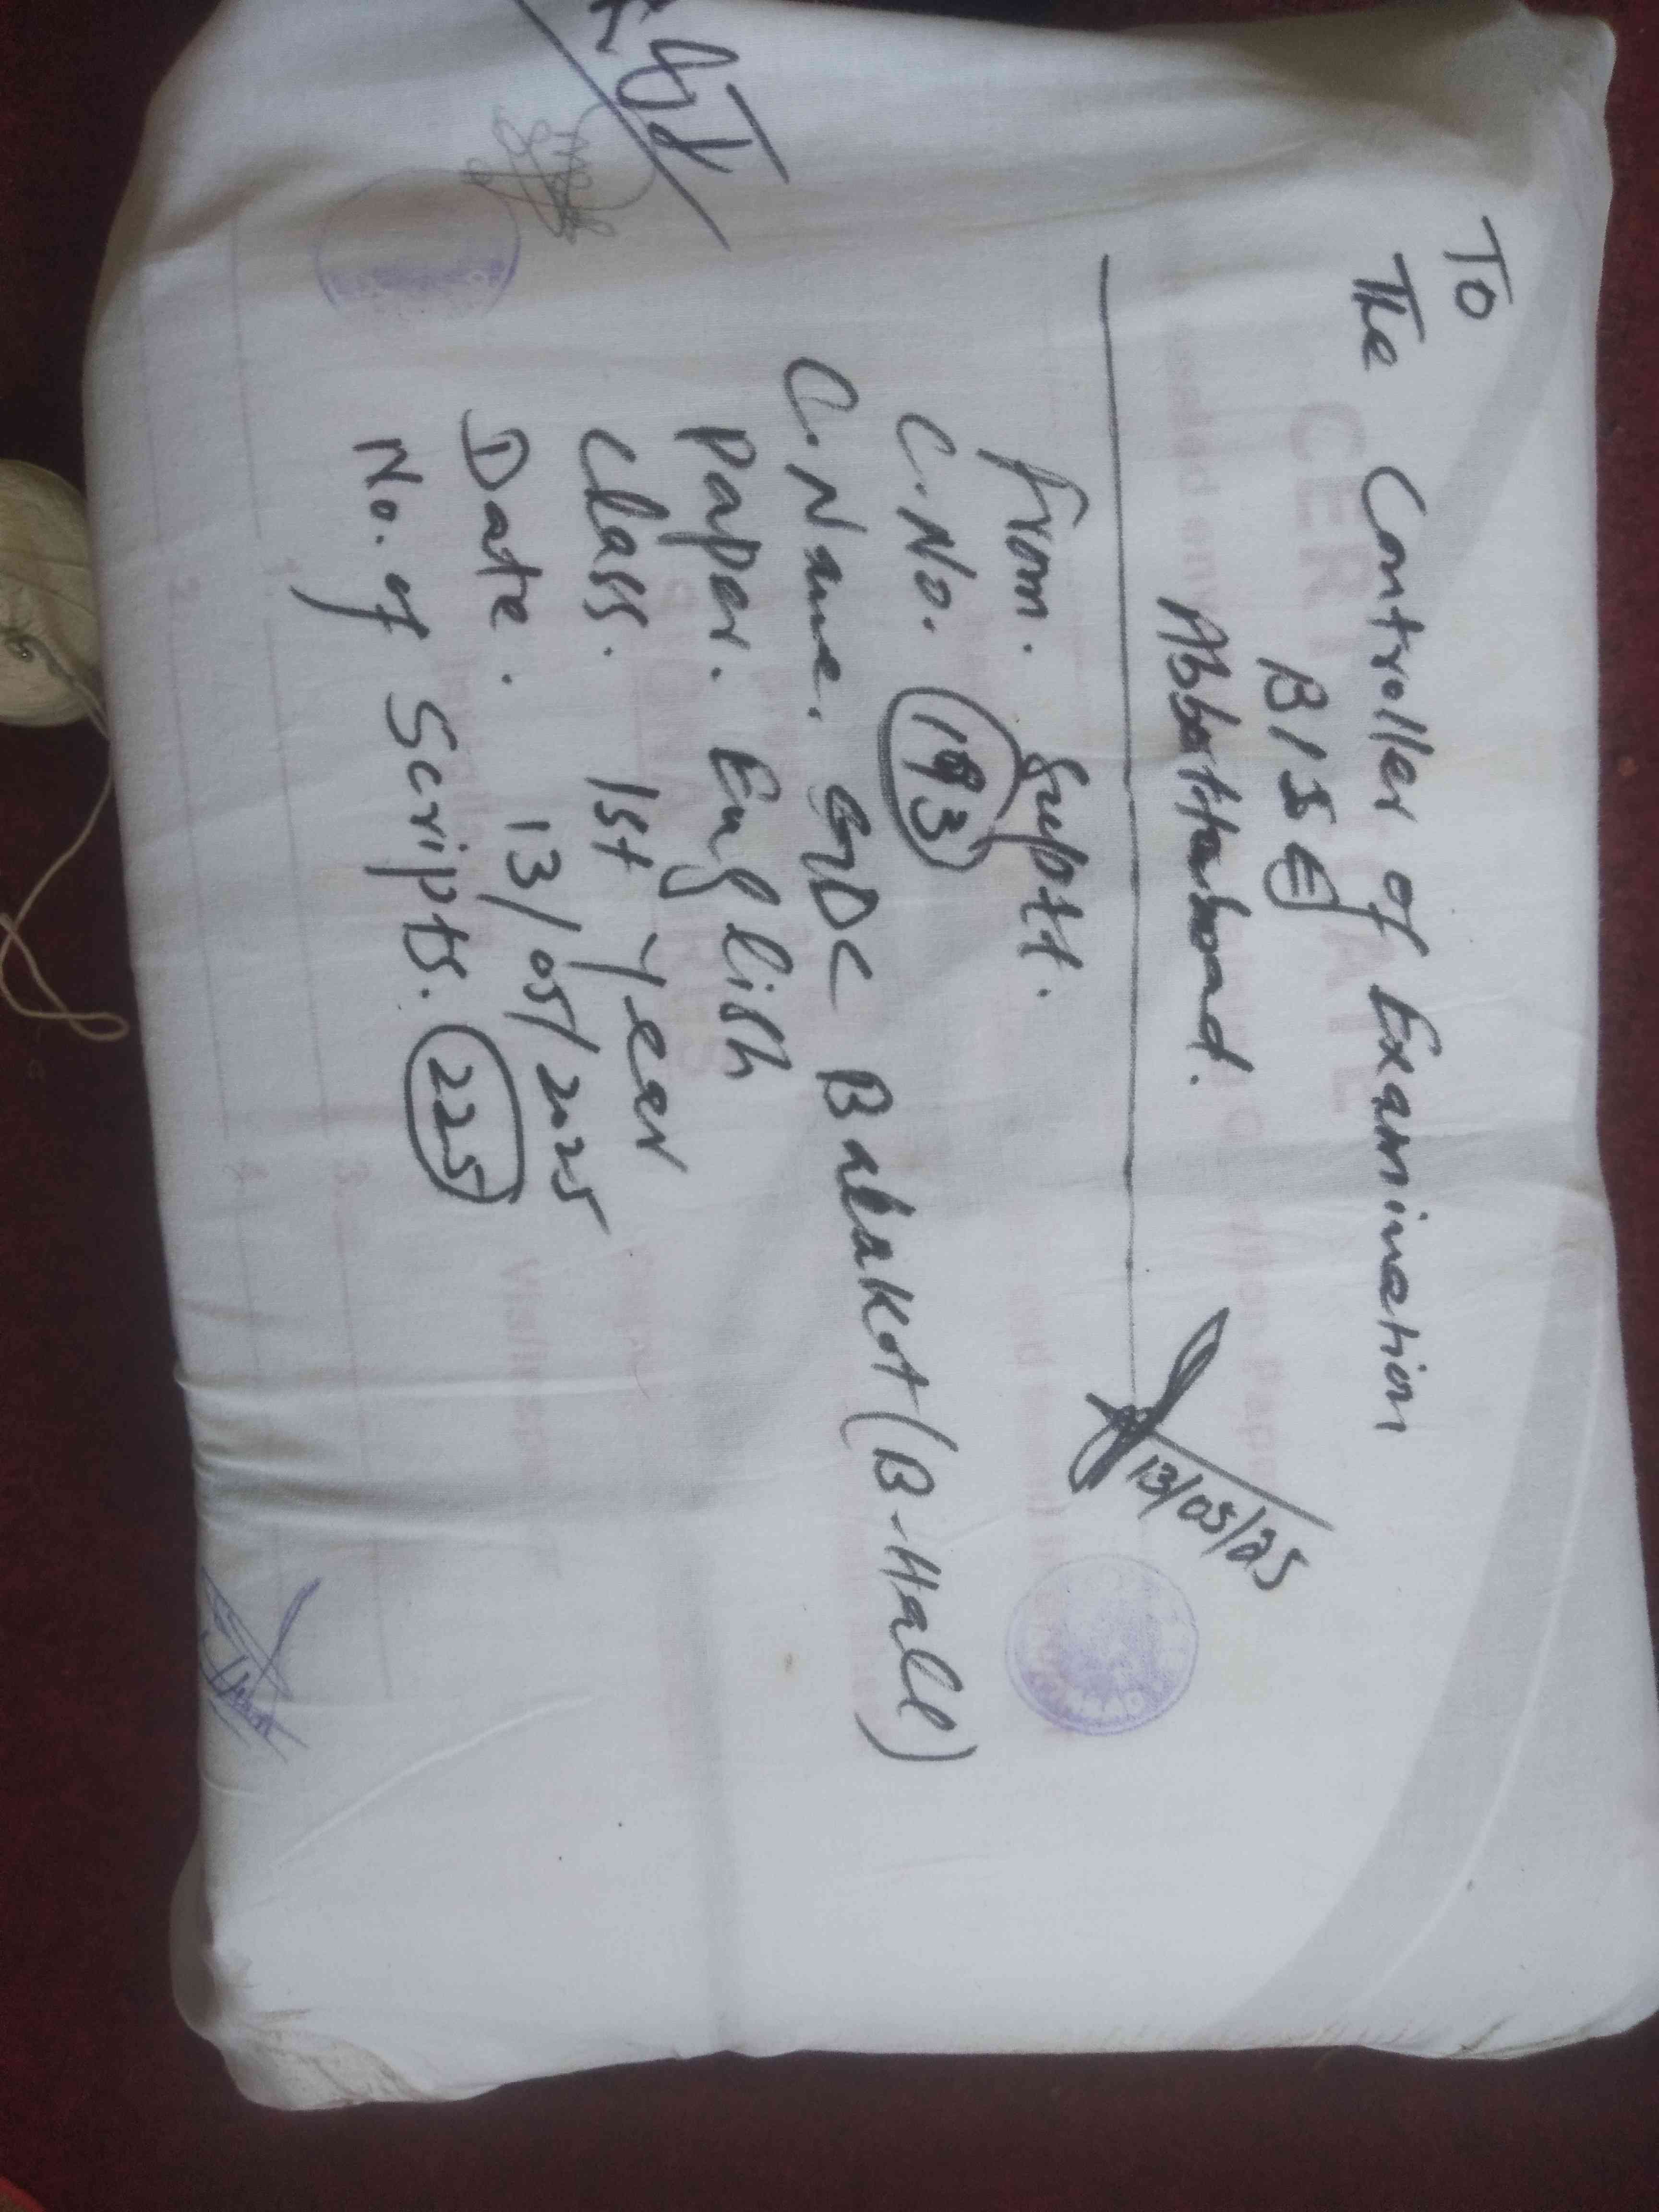 To
The Controller of Examination
BISE
Abbottabad.
13/05/25
From. Suptt.
C.No. 193
C.Name. GDC Balakot (B-Hall)
Paper. English
Class. 1st year
Date. 13/05/2025
No. of Scripts. 225